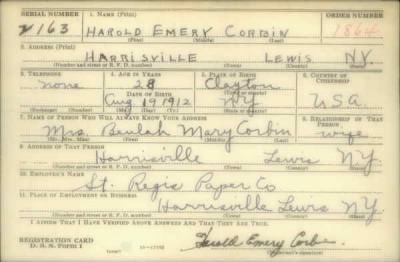 SERIAL NUMBER 1. NAME (Print) ORDER NUMBER
2163 HAROLD EMERY CORBIN 1864
(First) (Middle) (Last)
2. ADDRESS (Print)
HARRISVILLE LEWIS N.Y.
(Number and street or R. F. D. number) (Town) (County) (State)
3. TELEPHONE 4. AGE IN YEARS 5. PLACE OF BIRTH 6. COUNTRY OF CITIZENSHIP
none 28 Clayton
DATE OF BIRTH (Town or county)
Aug 19 1912 NY USA
(Exchange) (Number) (Mo.) (Day) (Yr.) (State or country)
7. NAME OF PERSON WHO WILL ALWAYS KNOW YOUR ADDRESS 8. RELATIONSHIP OF THAT PERSON
Mrs Beulah Mary Corbin wife
(Mr., Mrs., Miss) (First) (Middle) (Last)
9. ADDRESS OF THAT PERSON
Harrisville Lewis NY
(Number and street or R. F. D. number) (Town) (County) (State)
10. EMPLOYER'S NAME
St. Regis Paper Co
11. PLACE OF EMPLOYMENT OR BUSINESS
Harrisville Lewis NY
(Number and street or R. F. D. number) (Town) (County) (State)
I AFFIRM THAT I HAVE VERIFIED ABOVE ANSWERS AND THAT THEY ARE TRUE.
REGISTRATION CARD
D. S. S. Form 1 Harold Emery Corbin
(Registrant's signature)